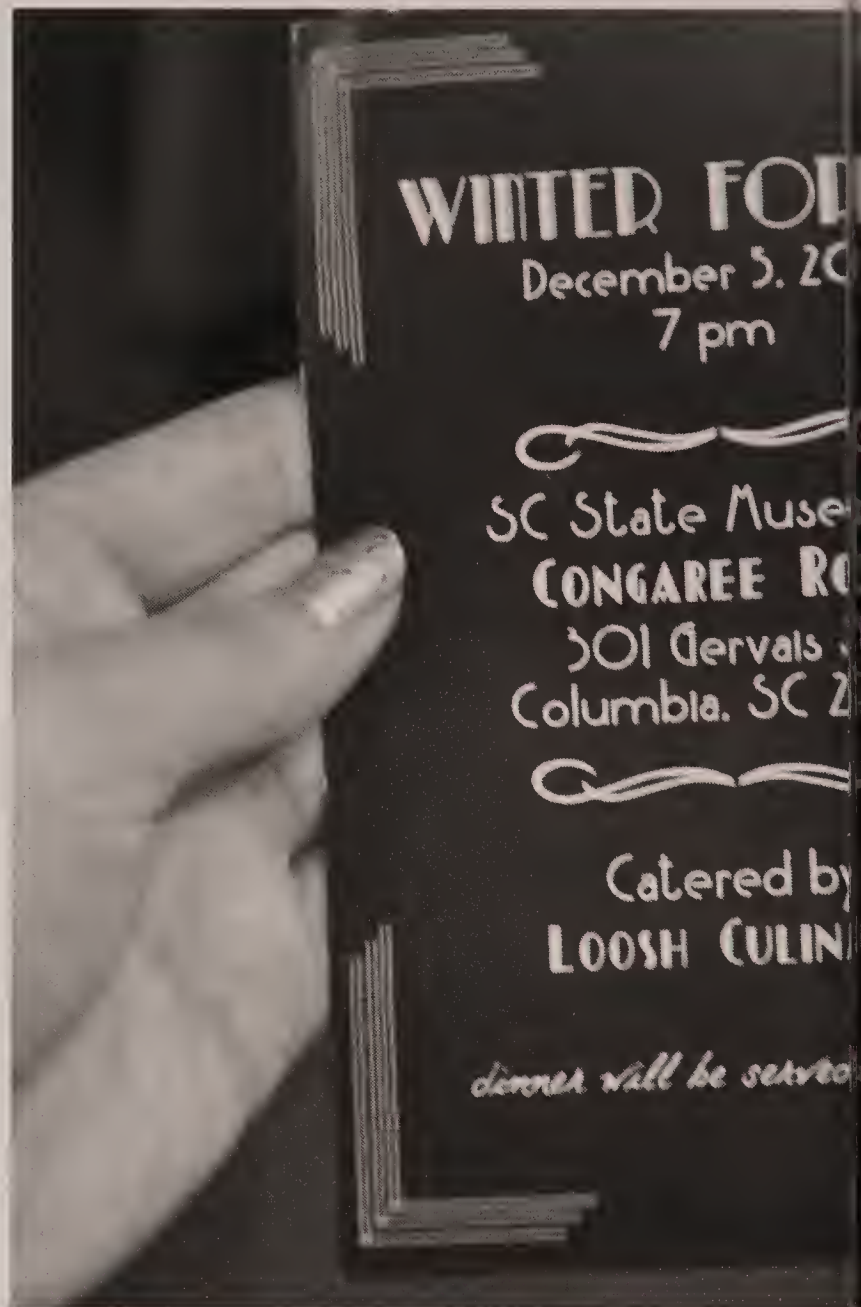 WINTER FOR
December 5, 20
7 pm
SC State Muse
CONGAREE RO
301 Gervais
Columbia, SC 2
Catered by
LOOSH CULIN
dinner will be serve